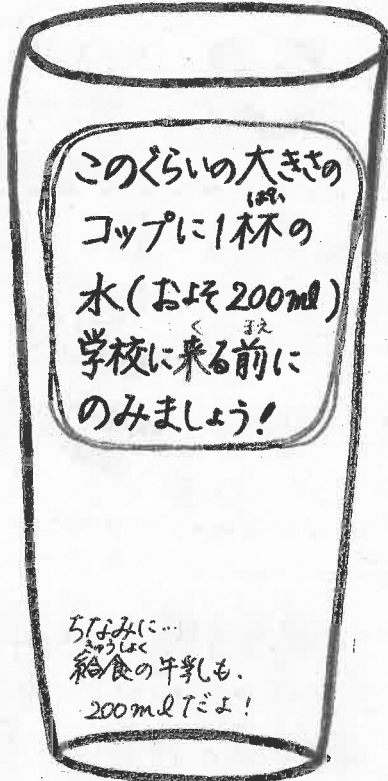 このぐらいの大きさの
コップに1杯の
水(およそ200ml)
学校に来る前に
のみましょう!
ちなみに…
給食の牛乳も、
200mlだよ!